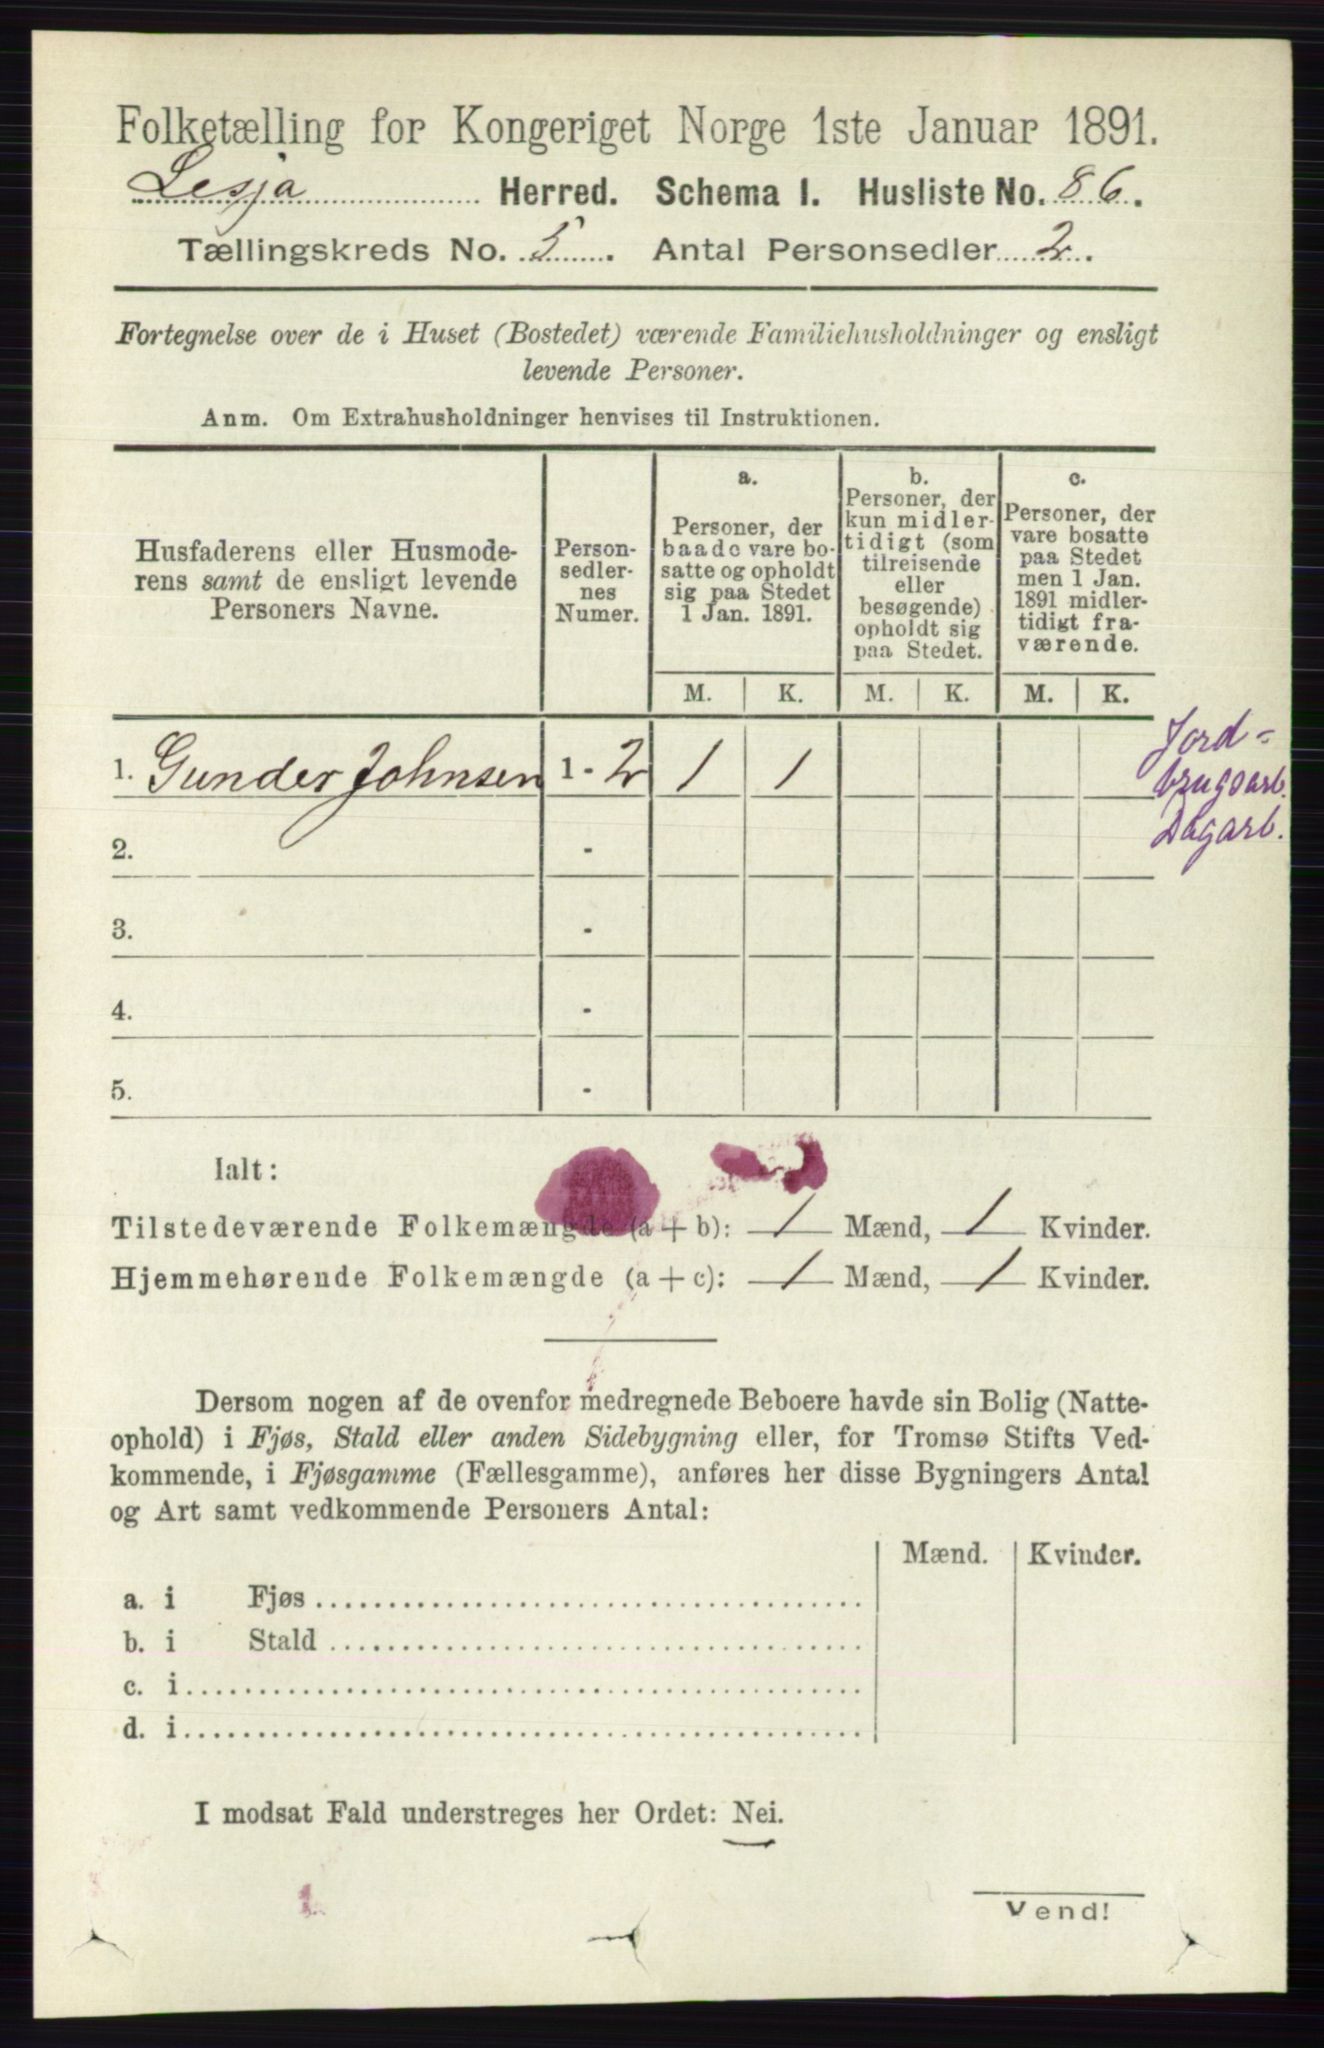 Folketælling for Kongeriget Norge 1ste Januar 1891.
Lesja Herred. Schema 1. Husliste No. 86.
Tællingskreds No. 5. Antal Personsedler 2.
Fortegnelse over de i Huset (Bostedet) værende Familiehusholdninger og ensligt
levende Personer.
Anm. Om Extrahusholdninger henvises til Instruktionen.
Husfaderens eller Husmode-
rens samt de ensligt levende
Personers Navne.
Person-
sedler-
nes
Numer.
a.
Personer, der
baade vare bo-
satte og opholdt
sig paa Stedet
1 Jan. 1891.
b.
Personer, der
kun midler-
tidigt (som
tilreisende
eller
besøgende)
opholdt sig
paa Stedet.
c.
Personer, der
vare bosatte
paa Stedet
men 1 Jan.
1891 midler-
tidigt fra-
værende.
M. K. M. K. M. K.
1. Gunder Johnsen 1 - 2 1 1
Jord-
brugsarb.
Dagarb.
2. -
3. -
4. -
5. -
Ialt:
Tilstedeværende Folkemængde (a + b): 1 Mænd, 1 Kvinder.
Hjemmehørende Folkemængde (a + c): 1 Mænd, 1 Kvinder.
Dersom nogen af de ovenfor medregnede Beboere havde sin Bolig (Natte-
ophold) i Fjøs, Stald eller anden Sidebygning eller, for Tromsø Stifts Ved-
kommende, i Fjøsgamme (Fællesgamme), anføres her disse Bygningers Antal
og Art samt vedkommende Personers Antal:
Mænd. Kvinder.
a. i Fjøs
b. i Stald
c. i
d. i
I modsat Fald understreges her Ordet: Nei.
Vend!